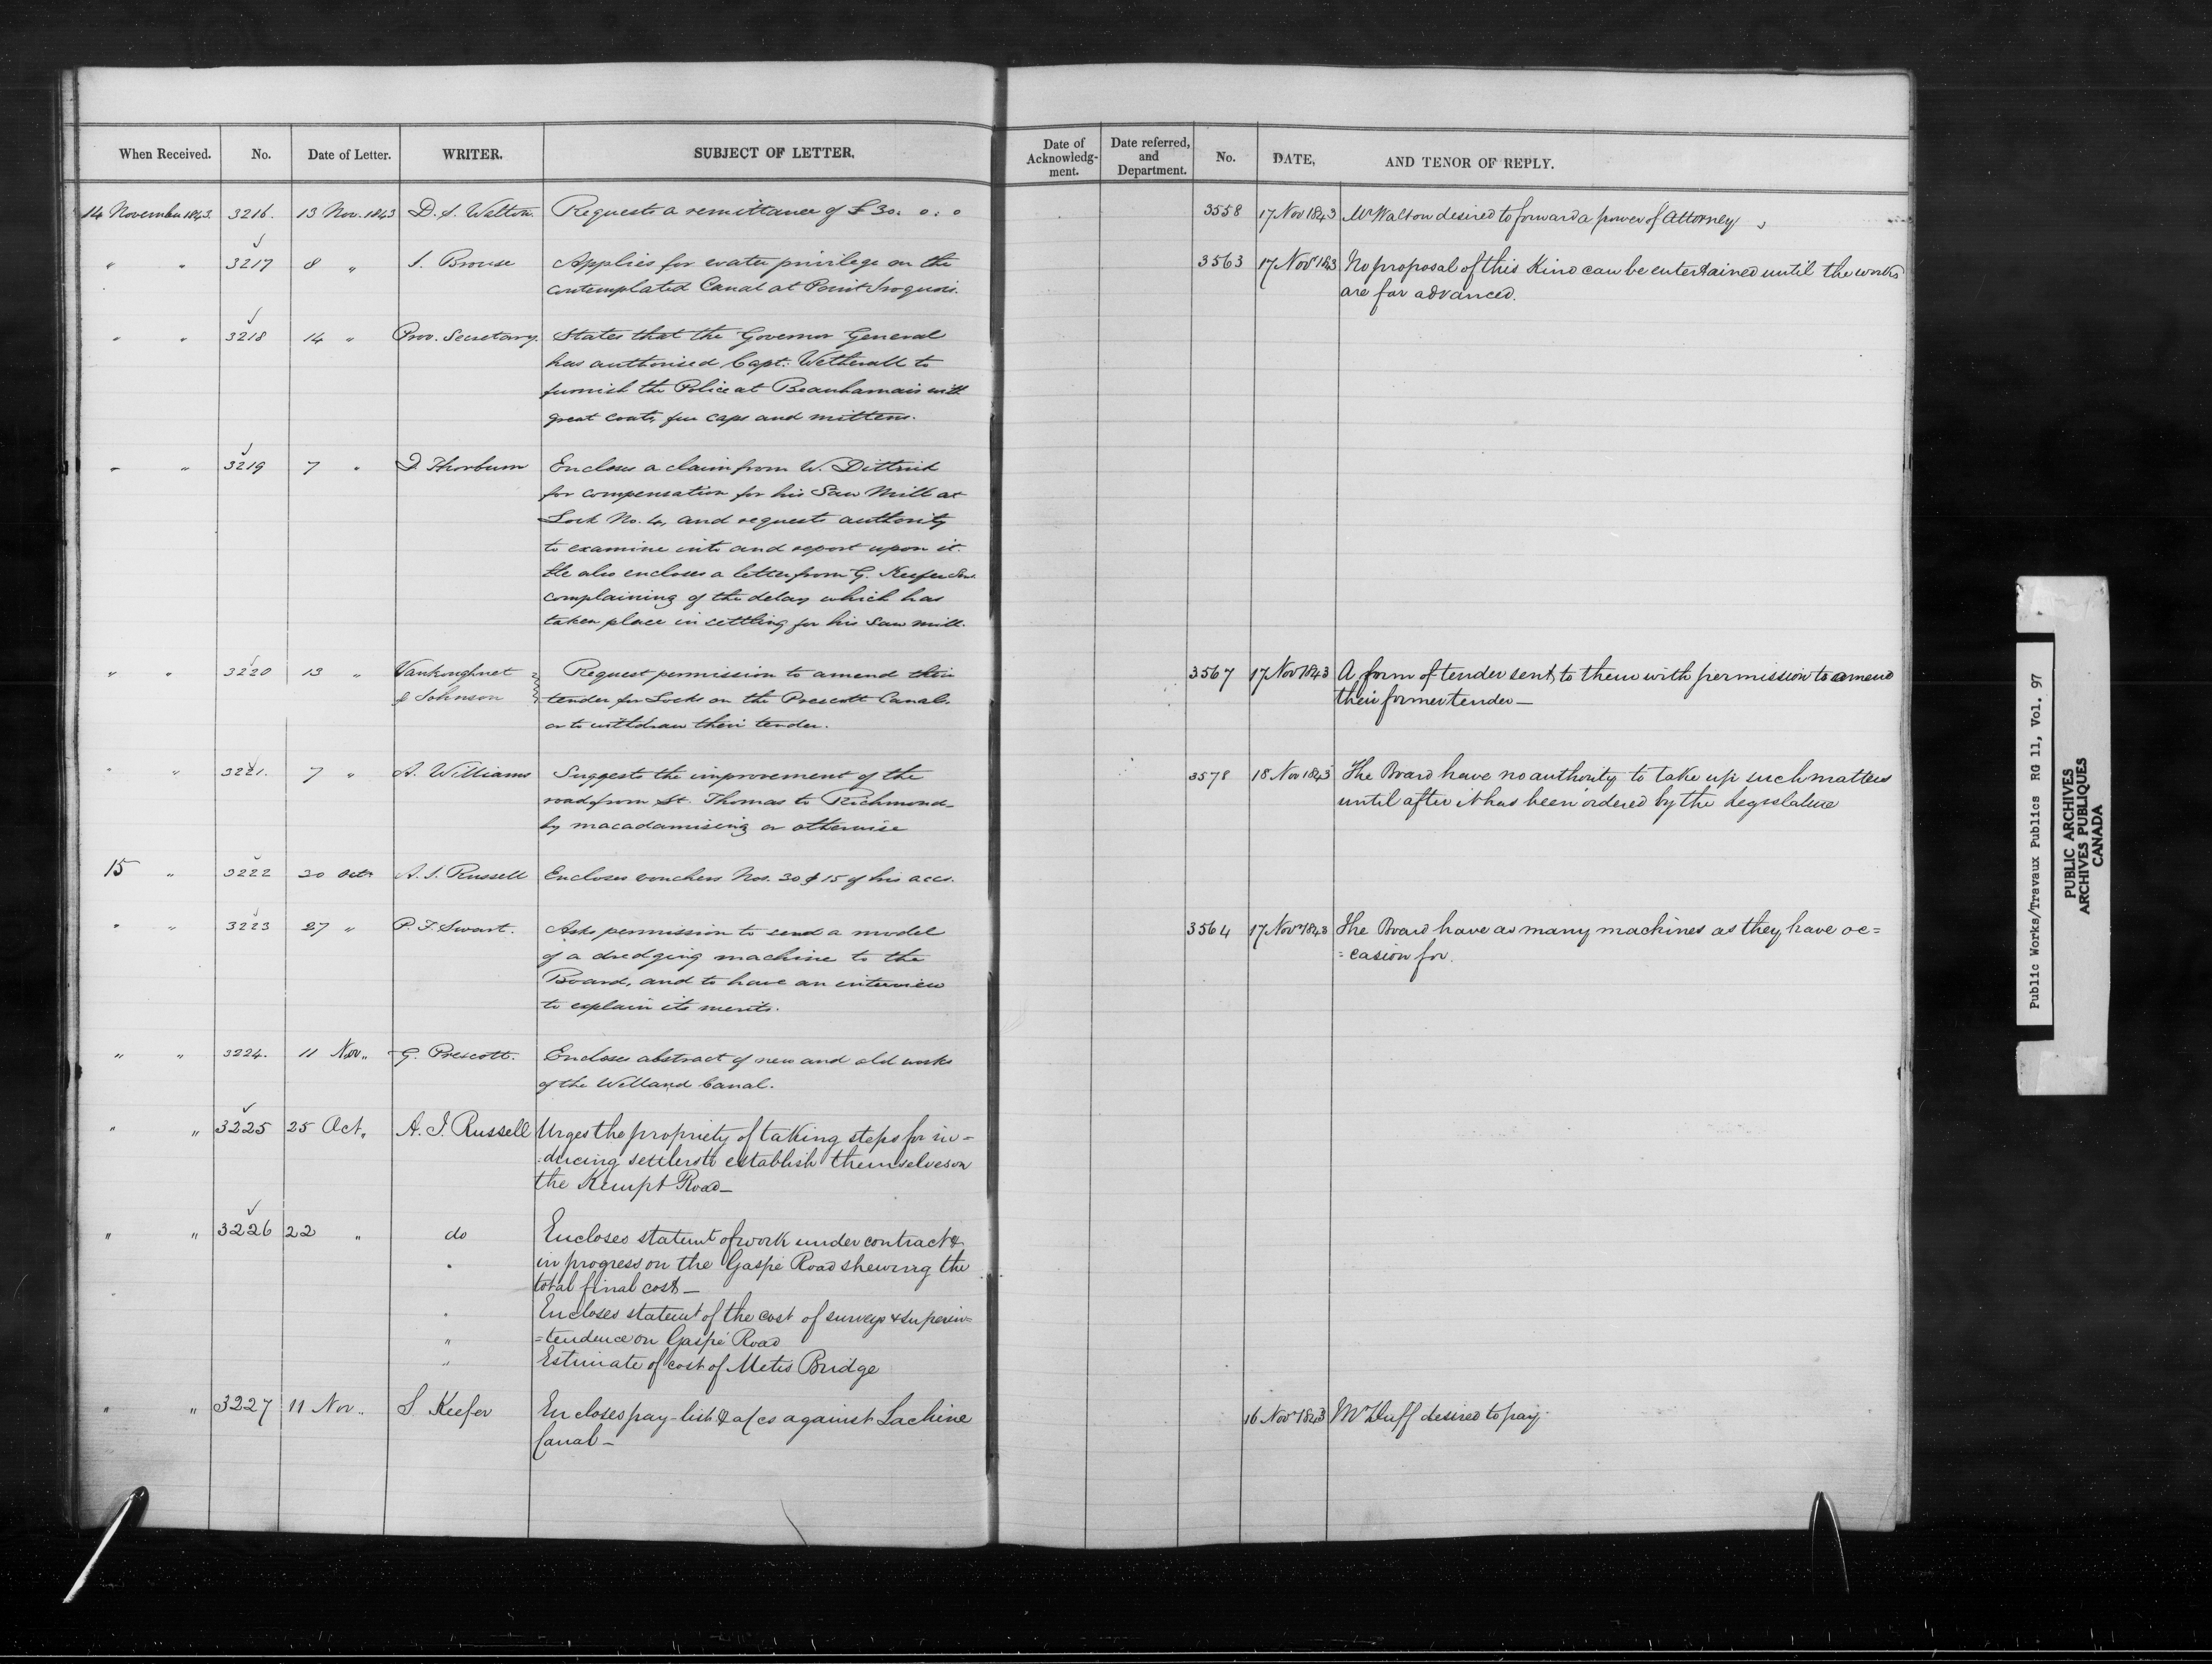 When Received. No. Date of Letter. WRITER. SUBJECT OF LETTER.
14 November 1843. 3216. 13 Nov. 1843 D. S. Walton. Requests a remittance of £30. 0. 0
" " 3217 8 " J. Brouse Applies for water privilege on the
contemplated Canal at Point Iroquois.
" " 3218 14 " Prov. Secretary. States that the Governor General
has authorised Capt. Wetherall to
furnish the Police at Beauharnais with
great coats, fur caps and mittens.
" " 3219 7 " D. Thorburn Encloses a claim from W. Dittrick
for compensation for his Saw Mill at
Lock No. 4, and requests authority
to examine into and report upon it.
He also encloses a letter from G. Keefer Sen.
complaining of the delay which has
taken place in settling for his Saw mill.
" " 3220 13 " Vankoughnet Request permission to amend their
& Johnson tender for Locks on the Prescott Canal,
or to withdraw their tender.
" " 3221. 7 " A. Williams Suggests the improvement of the
road from St. Thomas to Richmond
by macadamising or otherwise
15 " 3222 20 Octr A. J. Russell Encloses vouchers Nos. 30 & 15 of his accs.
" " 3223 27 " P. F. Swart. Asks permission to send a model
of a dredging machine to the
Board, and to have an interview
to explain its merits.
" " 3224. 11 Nov " G. Prescott. Encloses abstract of new and old works
of the Welland Canal.
" " 3225 25 Oct " A. J. Russell Urges the propriety of taking steps for in=
=ducing settlers to establish themselves on
the Kempt Road —
" " 3226 22 " do Encloses statemt of work under contract &
" in progress on the Gaspé Road shewing the
total final cost —
" Encloses statemt of the cost of surveys & superin=
" =tendence on Gaspé Road
" Estimate of cost of Metis Bridge
" " 3227 11 Nov " S. Keefer Encloses pay-list & a/cs against Lachine
Canal —
Date of Acknowledg-ment. Date referred, and Department. No. DATE, AND TENOR OF REPLY.
3558 17 Nov 1843 Mr Walton desired to forward a power of Attorney
3563 17 Nov 1843 No proposal of this Kind can be entertained until the works
are far advanced.
3567 17 Nov 1843 A form of tender sent to them with permission to amend
their former tender —
3578 18 Nov 1843 The Board have no authority to take up such matters
until after it has been ordered by the Legislature
3564 17 Novr 1843 The Board have as many machines as they have oc=
=casion for.
16 Novr 1843 Mr Duff desired to pay.
Public Works/Travaux Publics RG 11, Vol. 97
PUBLIC ARCHIVES
ARCHIVES PUBLIQUES
CANADA